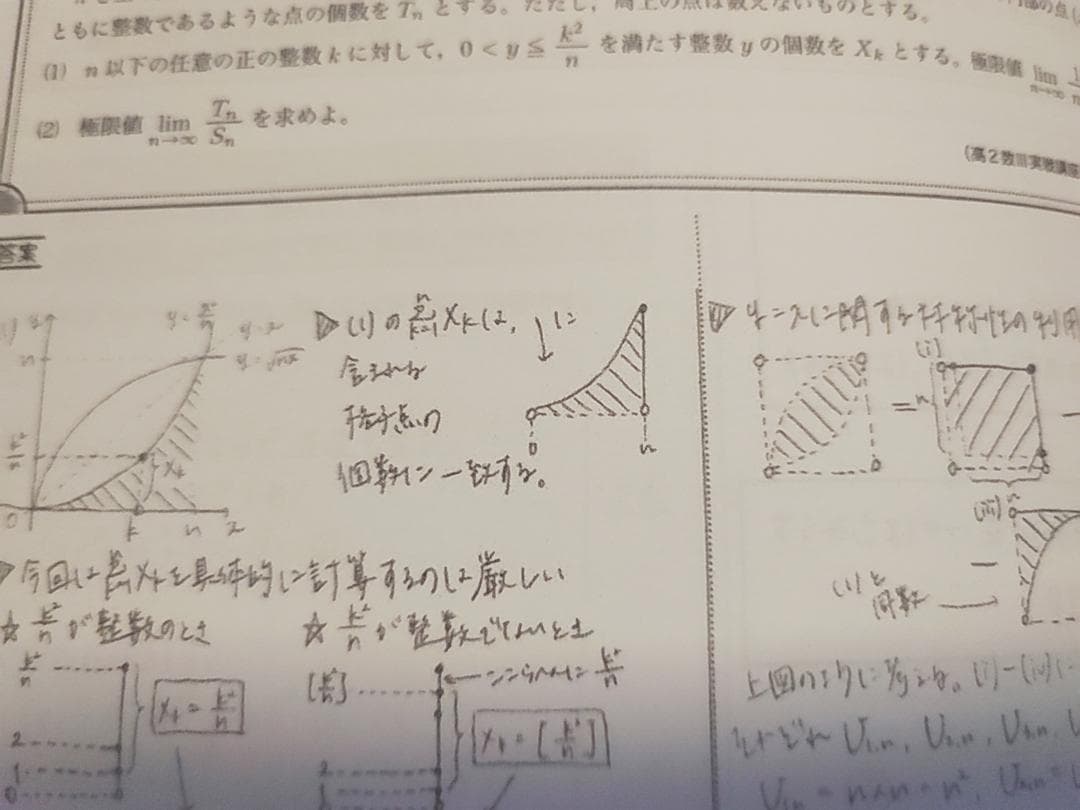 ともに整数であるような点の個数を Tn とする。ただし，周上の点は数えないものとする。
(1) n 以下の任意の正の整数 k に対して，0 < y ≦ k²/n を満たす整数 y の個数を Xk とする。極限値 lim n→∞
(2) 極限値 lim n→∞ Tn/Sn を求めよ。
(高2数III実戦講座
答案
y = x²/n
y = x
y = √nx
n
k²/n
Xk
O k n x
▷(1)の Σ k=1 n Xk は, に
含まれる
格子点の
個数に一致する。
0 n
▷今回は ΣXk を具体的に計算するのは厳しい
☆ k²/n が整数のとき
k²/n
2
1
0
Xk = k²/n
☆ k²/n が整数でないとき
[k²/n]
ここらへんに k²/n
2
1
Xk = [k²/n]
▷ y=xに関する対称性の利用
(i)
n
=
n
(iii)
(1)と
同数
上図のように考える。(i)-(iii)に
それぞれ U1,n, U2,n, U3,n,
U1,n = n×n = n²,